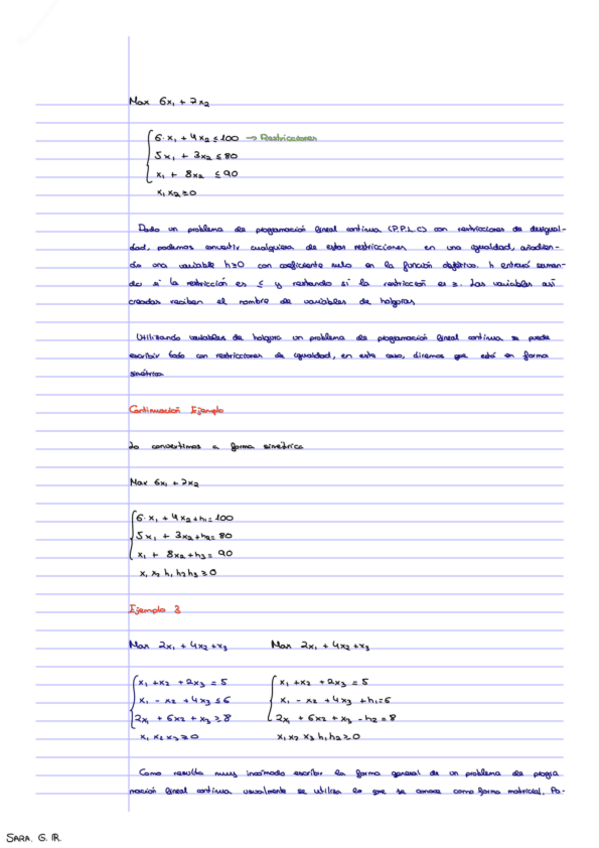 Max 6x₁ + 7x₂
6·x₁ + 4x₂ ≤ 100 → Restricciones
5x₁ + 3x₂ ≤ 80
x₁ + 8x₂ ≤ 90
x₁ x₂ ≥ 0
Dado un problema de programación lineal continua (P.P.L.C) con restricciones de desigual-
dad, podemos convertir cualquiera de estas restricciones en una igualdad, añadien-
do una variable h≥0 con coeficiente nulo en la función objetivo. h entrará suman-
do si la restricción es ≤ y restando si la restricción es ≥. Las variables así
creadas reciben el nombre de variables de holguras
Utilizando variables de holgura un problema de programación lineal continua se puede
escribir todo con restricciones de igualdad, en este caso, diremos que está en forma
simétrica
Continuación Ejemplo
Lo convertimos a forma simétrica
Max 6x₁ + 7x₂
6·x₁ + 4x₂ + h₁ = 100
5x₁ + 3x₂ + h₂ = 80
x₁ + 8x₂ + h₃ = 90
x₁ x₂ h₁ h₂ h₃ ≥ 0
Ejemplo 3
Max 2x₁ + 4x₂ + x₃ Max 2x₁ + 4x₂ + x₃
x₁ + x₂ + 2x₃ = 5 x₁ + x₂ + 2x₃ = 5
x₁ - x₂ + 4x₃ ≤ 6 x₁ - x₂ + 4x₃ + h₁ = 6
2x₁ + 6x₂ + x₃ ≥ 8 2x₁ + 6x₂ + x₃ - h₂ = 8
x₁ x₂ x₃ ≥ 0 x₁ x₂ x₃ h₁ h₂ ≥ 0
Como resulta muy incómodo escribir la forma general de un problema de progra
mación lineal continua, usualmente se utiliza lo que se conoce como forma matricial. Pa-
SARA. G. R.